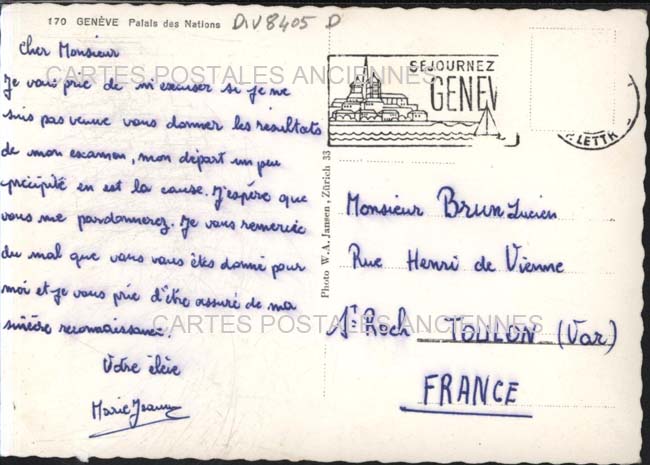 170 GENÈVE Palais des Nations
D.V 8405 D
Cher Monsieur
Je vous prie de m'excuser si je ne
suis pas venue vous donner les résultats
de mon examen, mon départ un peu
précipité en est la cause. J'espère que
vous me pardonnerez. Je vous remercie
du mal que vous vous êtes donné pour
moi et je vous prie d'être assuré de ma
sincère reconnaissance.
Votre élève
Marie Jeanne
CARTES POSTALES ANCIENNES
CARTES POSTALES ANCIENNES
Photo W. A. Jansen, Zürich 33
SÉJOURNEZ
GENEV
LETTR
Monsieur Brun Lucien
Rue Henri de Vienne
St Roch TOULON (Var)
FRANCE